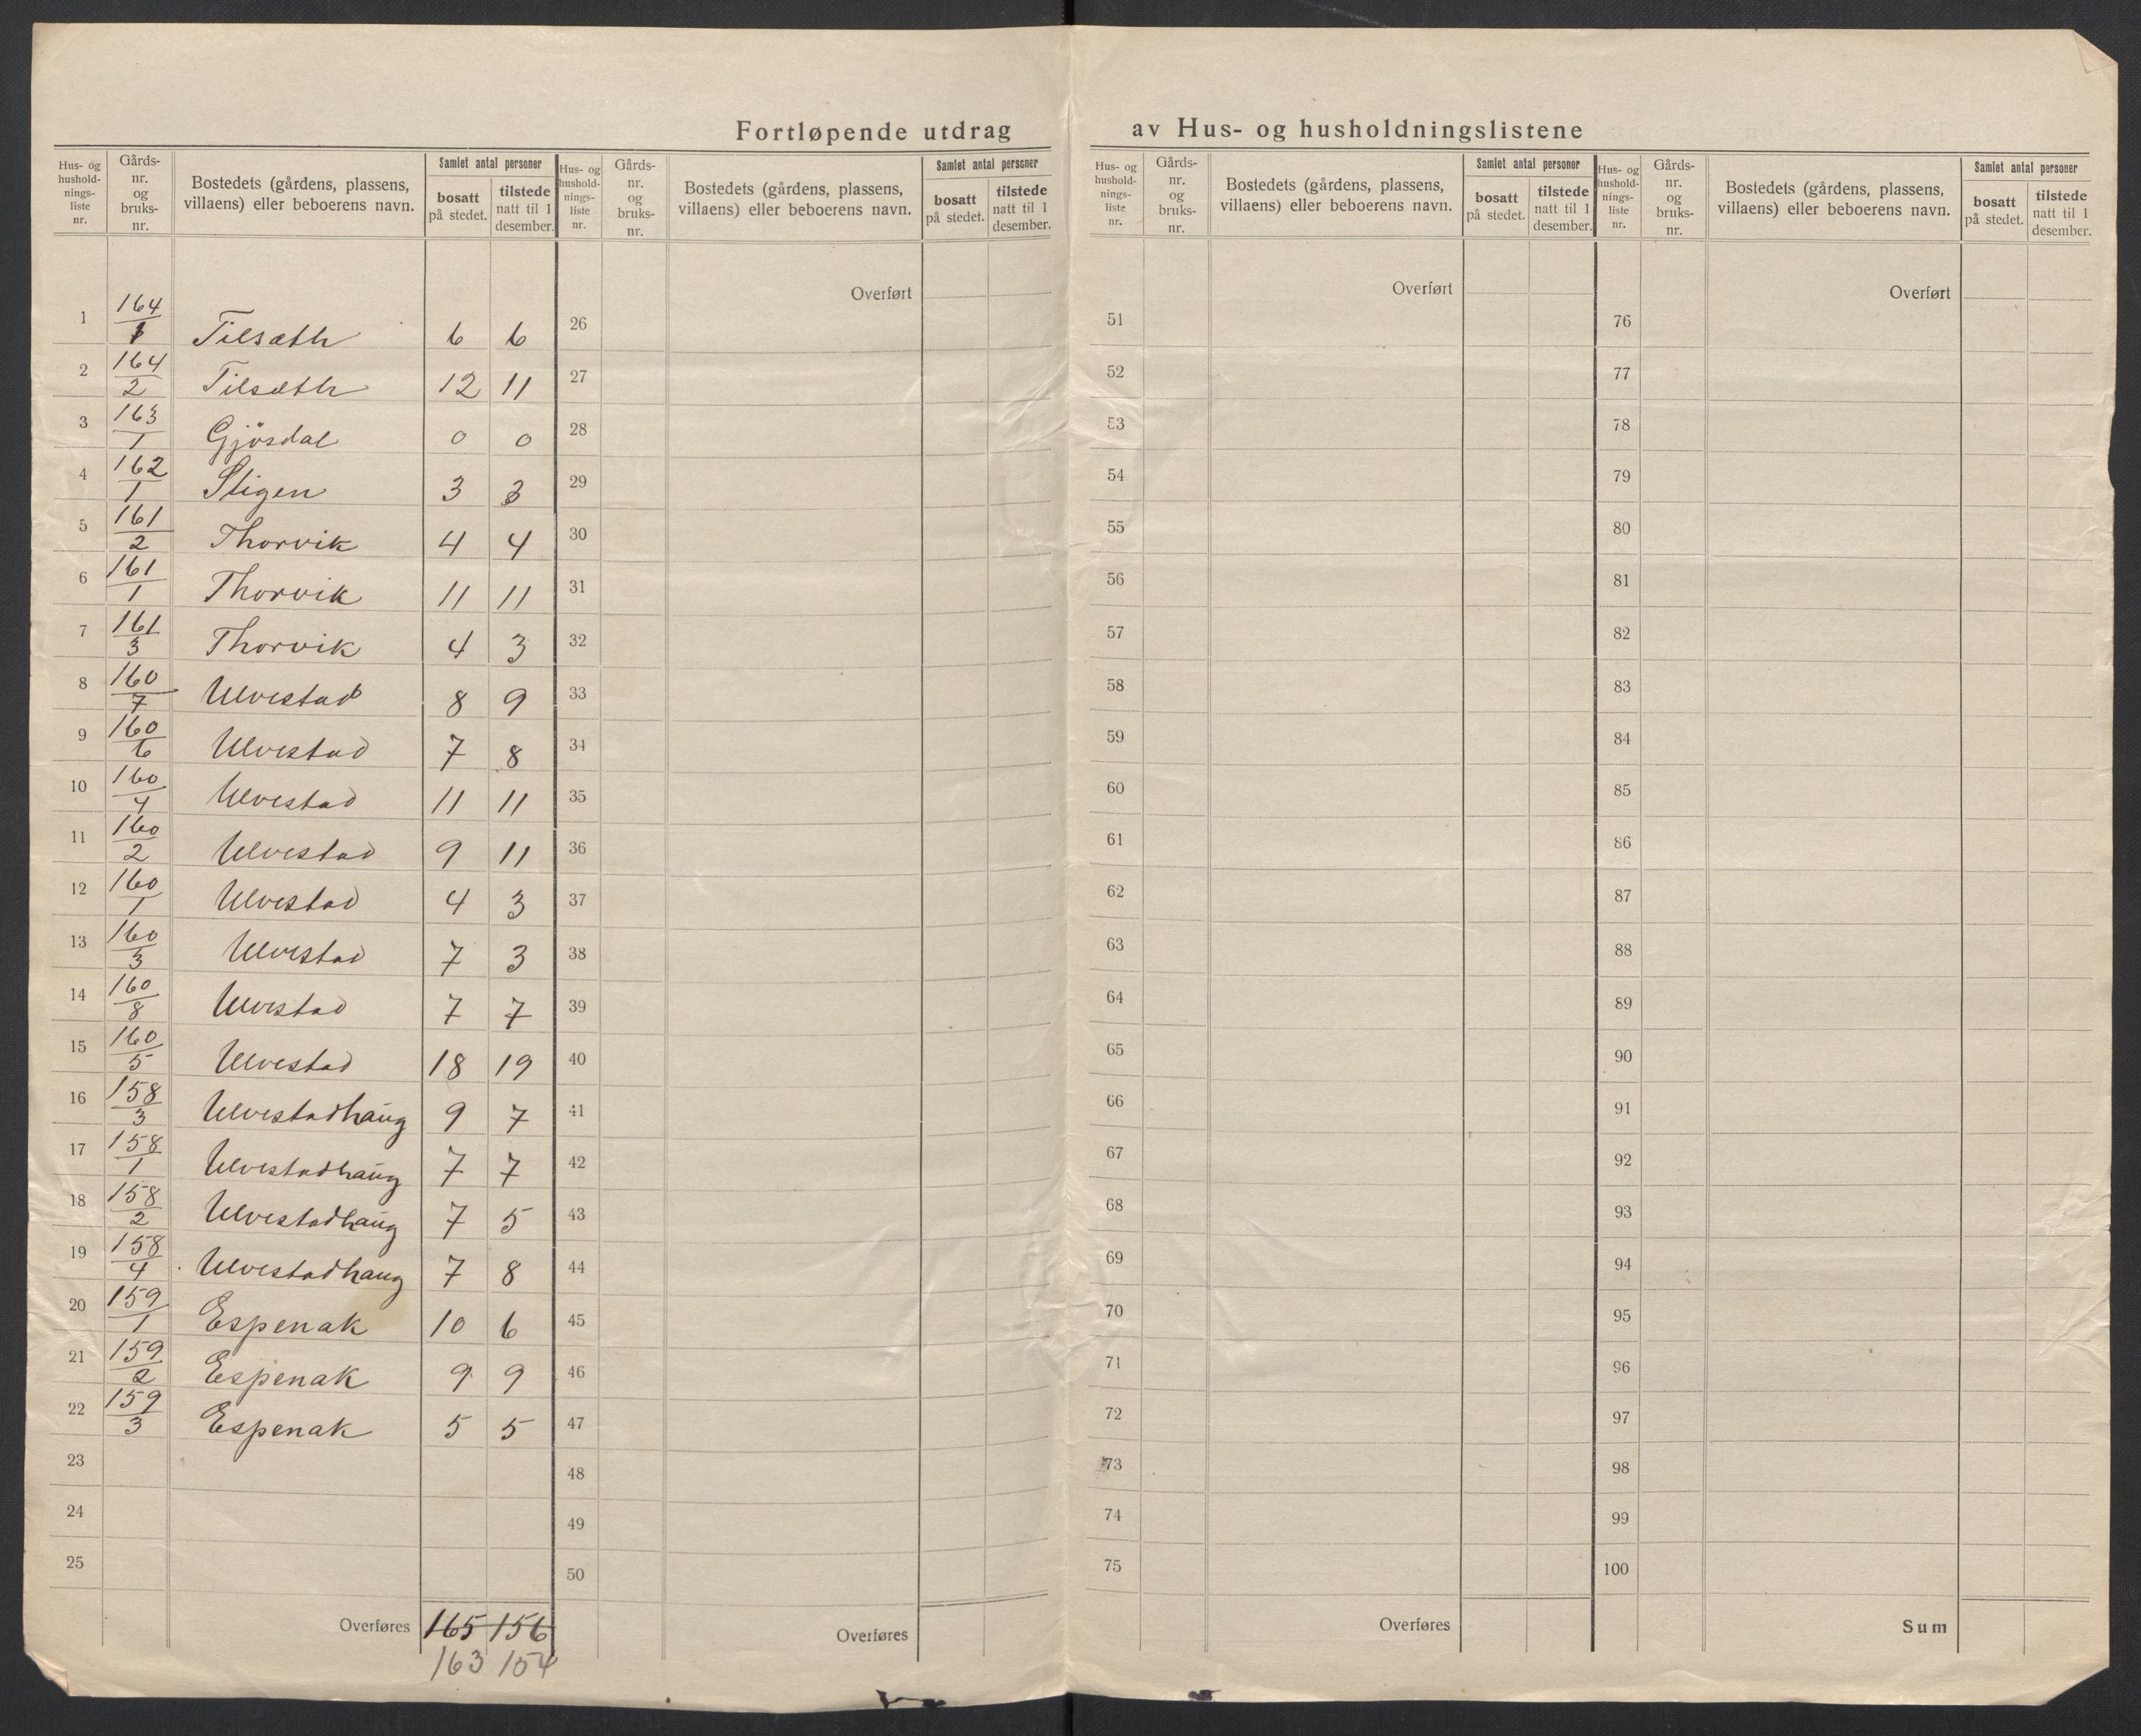 Fortløpende utdrag av Hus- og husholdningslistene
Hus- og hushold- nings- liste nr. | Gårds- nr. og bruks- nr. | Bostedets (gårdens, plassens, villaens) eller beboerens navn. | Samlet antal personer | bosatt på stedet. | tilstede natt til 1 desember.
1 164/1 Tilsæth 6 6
2 164/2 Tilsæth 12 11
3 163/1 Gjösdal 0 0
4 162/1 Stigen 3 3
5 161/2 Thorvik 4 4
6 161/1 Thorvik 11 11
7 161/3 Thorvik 4 3
8 160/7 Ulvestad 8 9
9 160/6 Ulvestad 7 8
10 160/4 Ulvestad 11 11
11 160/2 Ulvestad 9 11
12 160/1 Ulvestad 4 3
13 160/3 Ulvestad 7 3
14 160/8 Ulvestad 7 7
15 160/5 Ulvestad 18 19
16 158/3 Ulvestadhaug 9 7
17 158/1 Ulvestadhaug 7 7
18 158/2 Ulvestadhaug 7 5
19 158/4 Ulvestadhaug 7 8
20 159/1 Espenak 10 6
21 159/2 Espenak 9 9
22 159/3 Espenak 5 5
23
24
25
Overføres 165 156
163 154
Hus- og hushold- nings- liste nr. | Gårds- nr. og bruks- nr. | Bostedets (gårdens, plassens, villaens) eller beboerens navn. | Samlet antal personer | bosatt på stedet. | tilstede natt til 1 desember.
Overført
26
27
28
29
30
31
32
33
34
35
36
37
38
39
40
41
42
43
44
45
46
47
48
49
50
Overføres
Hus- og hushold- nings- liste nr. | Gårds- nr. og bruks- nr. | Bostedets (gårdens, plassens, villaens) eller beboerens navn. | Samlet antal personer | bosatt på stedet. | tilstede natt til 1 desember.
Overført
51
52
53
54
55
56
57
58
59
60
61
62
63
64
65
66
67
68
69
70
71
72
73
74
75
Overføres
Hus- og hushold- nings- liste nr. | Gårds- nr. og bruks- nr. | Bostedets (gårdens, plassens, villaens) eller beboerens navn. | Samlet antal personer | bosatt på stedet. | tilstede natt til 1 desember.
Overført
76
77
78
79
80
81
82
83
84
85
86
87
88
89
90
91
92
93
94
95
96
97
98
99
100
Sum